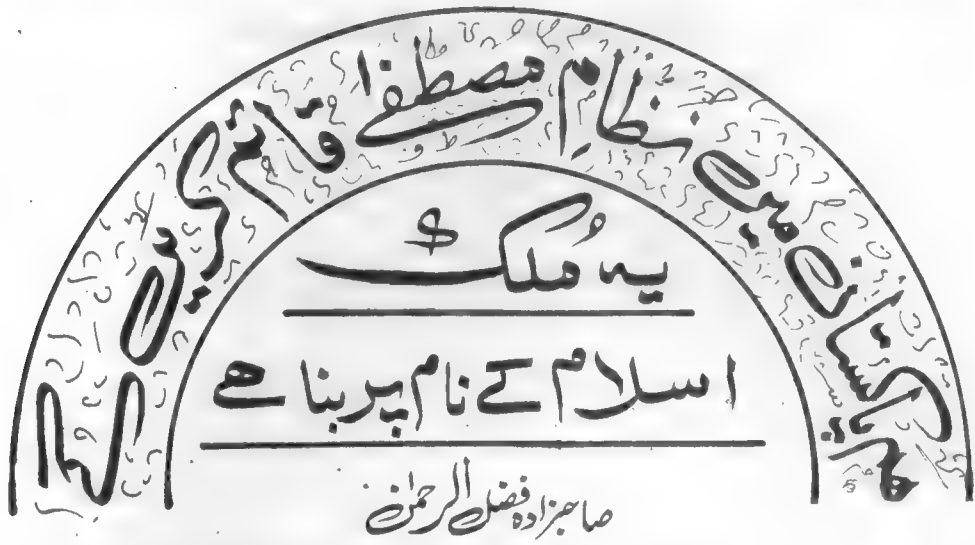 ہم پاکستان میں نظامِ مصطفےٰ قائم کریں گے
یہ مُلک
اسلام کے نام پر بنا ہے
صاحبزادہ فضل الرحمٰن